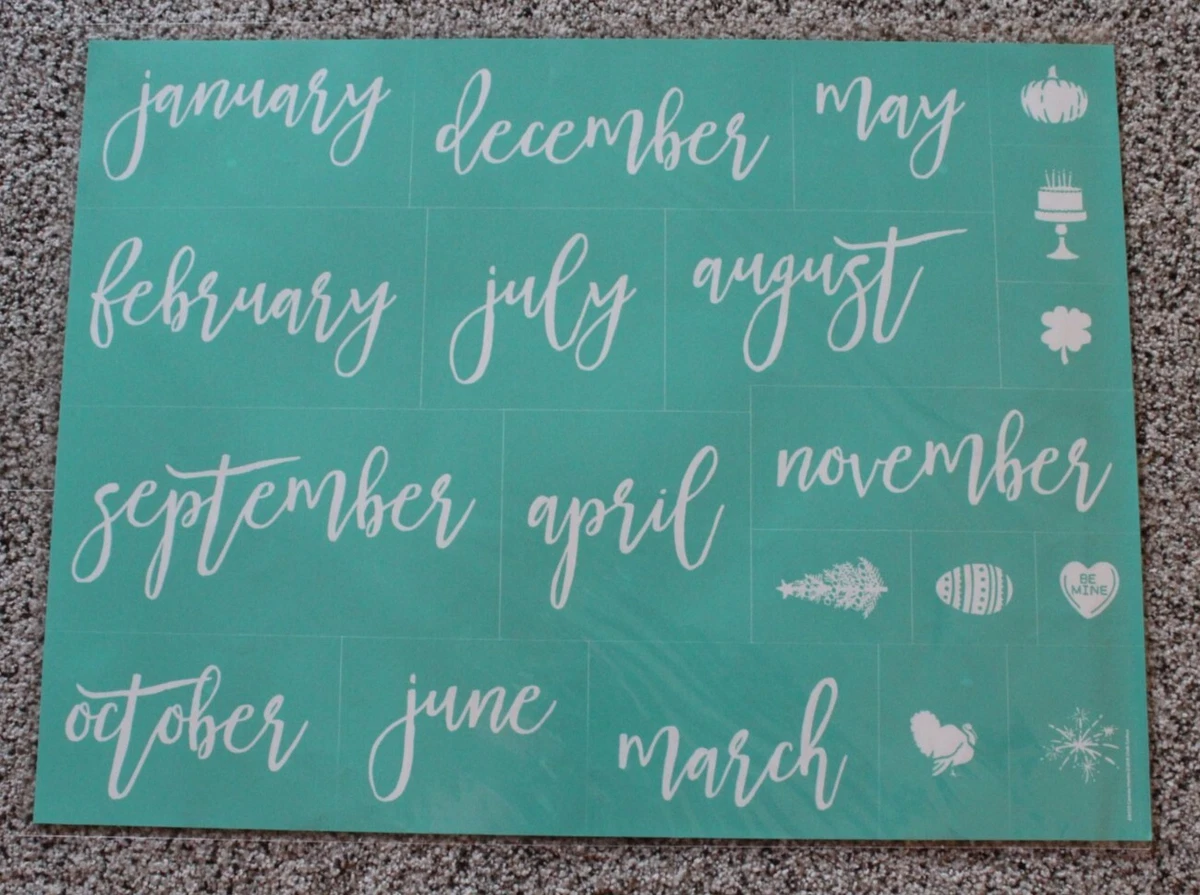 january
december
may
february
july
august
september
april
november
BE
MINE
october
june
march